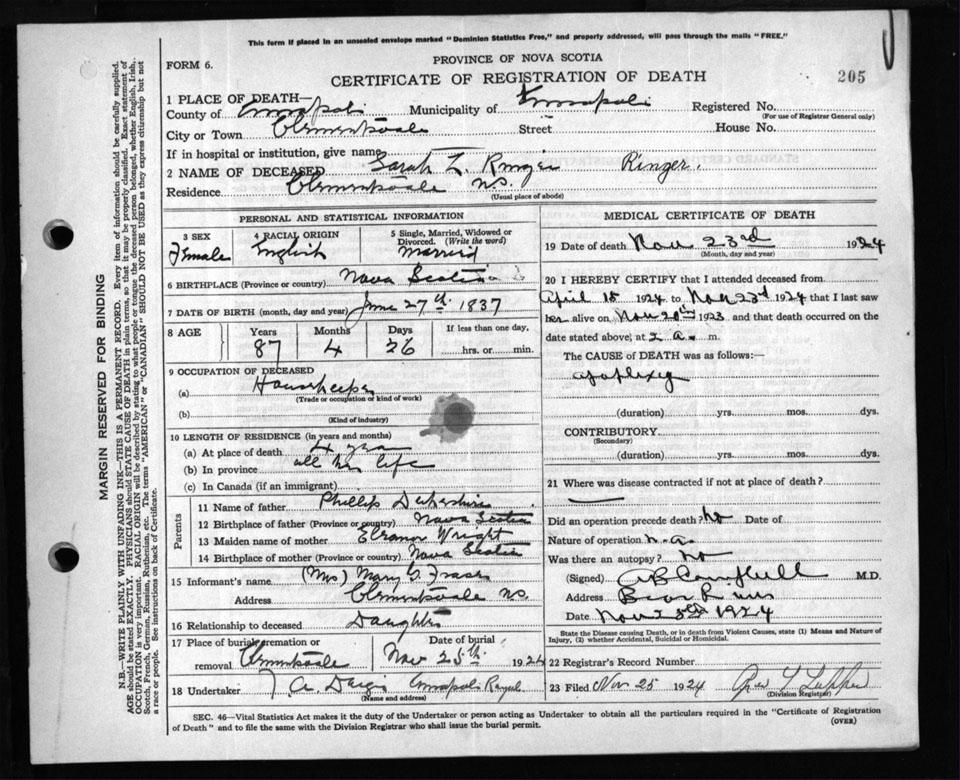 This form if placed in an unsealed envelope marked "Dominion Statistics Free," and properly addressed, will pass through the mails "FREE."
FORM 6.
PROVINCE OF NOVA SCOTIA
CERTIFICATE OF REGISTRATION OF DEATH
205
1 PLACE OF DEATH—
County of Annapolis Municipality of Annapolis Registered No.
(For use of Registrar General only)
City or Town Clementsvale Street House No.
If in hospital or institution, give name
2 NAME OF DECEASED Sarah Ringer.
Residence Clementsvale N.S.
(Usual place of abode)
PERSONAL AND STATISTICAL INFORMATION
3 SEX 4 RACIAL ORIGIN 5 Single, Married, Widowed or Divorced. (Write the word)
Female English Married
6 BIRTHPLACE (Province or country) Nova Scotia
7 DATE OF BIRTH (month, day and year) June 27th 1837
8 AGE Years Months Days If less than one day,
87 4 26 hrs. or min.
9 OCCUPATION OF DECEASED
(a) Housekeeper
(Trade or occupation or kind of work)
(b)
(Kind of industry)
10 LENGTH OF RESIDENCE (in years and months)
(a) At place of death
(b) In province all her life
(c) In Canada (if an immigrant)
Parents
11 Name of father Phillip
12 Birthplace of father (Province or country) Nova Scotia
13 Maiden name of mother Eleanor Wright
14 Birthplace of mother (Province or country) Nova Scotia
15 Informant's name (Mrs) Mary Fraser
Address Clementsvale N.S.
16 Relationship to deceased Daughter
17 Place of burial, cremation or removal Clementsvale
Date of burial Nov 25th 1924
18 Undertaker Annapolis Royal
(Name and address)
MEDICAL CERTIFICATE OF DEATH
19 Date of death Nov 23rd 1924
(Month, day and year)
20 I HEREBY CERTIFY that I attended deceased from
April 15 1924 to Nov 23rd 1924 that I last saw
her alive on Nov 20th 1923 and that death occurred on the
date stated above, at 2 a. m.
The CAUSE OF DEATH was as follows:—
apoplexy
(duration) yrs. mos. dys.
CONTRIBUTORY
(Secondary)
(duration) yrs. mos. dys.
21 Where was disease contracted if not at place of death?
Did an operation precede death? No Date of
Nature of operation n.a.
Was there an autopsy? No
(Signed) Campbell M.D.
Address Bear River
Date Nov 25th 1924
State the Disease causing Death, or in death from Violent Causes, state (1) Means and Nature of Injury, (2) whether Accidental, Suicidal or Homicidal.
22 Registrar's Record Number
23 Filed Nov 25 1924
(Division Registrar)
SEC. 46—Vital Statistics Act makes it the duty of the Undertaker or person acting as Undertaker to obtain all the particulars required in the "Certificate of Registration
of Death" and to file the same with the Division Registrar who shall issue the burial permit.
(OVER)
MARGIN RESERVED FOR BINDING
N.B.—WRITE PLAINLY WITH UNFADING INK—THIS IS A PERMANENT RECORD. Every item of information should be carefully supplied.
AGE should be stated EXACTLY. PHYSICIANS should STATE CAUSE OF DEATH in plain terms, so that it may be properly classified. Exact statement of
OCCUPATION is very important. RACIAL ORIGIN will be described by stating to what people or tongue the deceased person belonged, whether English, Irish,
Scotch, French, German, Russian, Ruthenian, etc. The terms "AMERICAN" or "CANADIAN" SHOULD NOT BE USED as they express citizenship but not
a race or people. See instructions on back of Certificate.